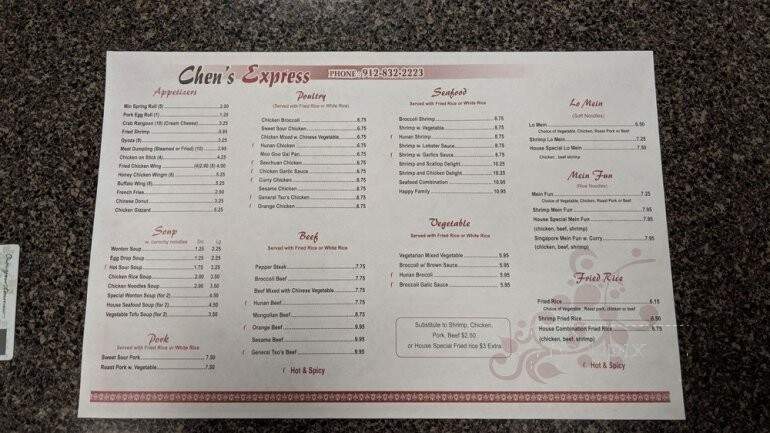 Chen's Express PHONE: 912-832-2223
Appetizers
Min Spring Roll (5) 2.00
Pork Egg Roll (1) 1.25
Crab Rangoon (10) (Cream Cheese) 3.25
Fried Shrimp 5.95
Gyoza (8) 3.25
Meat Dumpling (Steamed or Fried) (10)
Chicken on Stick (4) 4.25
Fried Chicken Wing (4)2.90 (8) 4.50
Honey Chicken Wingm (8) 5.25
Buffalo Wing (8) 5.25
French Fries 2.50
Chinese Donut 3.25
Chicken Gizzard 6.25
Soup
w. corunchy noodles Sm. Lg
Wonton Soup 1.25 2.25
Egg Drop Soup 1.25 2.25
Hot Sour Soup 1.75 3.25
Chicken Rice Soup 2.00 3.50
Chicken Noodles Soup 2.00 3.50
Special Wonton Soup (for 2) 4.50
House Seafood Soup (for 2) 4.50
Vegetable Tofu Soup (for 2) 3.50
Pork
Served with Fried Rice or White Rice
Sweet Sour Pork 7.50
Roast Pork w. Vegetable 7.50
Poultry
(Served with Fried Rice or White Rice)
Chicken Broccoli 6.75
Sweet Sour Chicken 6.75
Chicken Mixed w. Chinese Vegetable 6.75
Hunan Chicken 6.75
Moo Goo Gai Pan 6.75
Szechuan Chicken 6.75
Chicken Garlic Sauce 6.75
Curry Chicken 6.75
Sesame Chicken 8.75
General Tso's Chicken 8.75
Orange Chicken 8.75
Beef
Served with Fried Rice or White Rice
Pepper Steak 7.75
Broccoli Beef 7.75
Beef Mixed with Chinese Vegetable 7.75
Hunan Beef 7.75
Mongolian Beef 8.75
Orange Beef 9.95
Sesame Beef 9.95
General Tso's Beef 9.95
Hot & Spicy
Seafood
Served with Fried Rice or White Rice
Broccoli Shrimp 8.75
Shrimp w. Vegetable 8.75
Hunan Shrimp 8.75
Shrimp w. Lobster Sauce 8.75
Shrimp w. Garlics Sauce 8.75
Shrimp and Scallop Delight 10.25
Shrimp and Chicken Delight 10.25
Seafood Combination 10.95
Happy Family 10.95
Vegetable
Served with Fried Rice or White Rice
Vegetarian Mixed Vegetable 5.95
Broccoli w/ Brown Sauce 5.95
Hunan Brocoli 5.95
Broccoli Galic Sauce 5.95
Substitute to Shrimp, Chicken,
Pork, Beef $2.50
or House Special Fried rice $3 Extra
Lo Mein
(Soft Noodles)
Lo Mein 6.50
Choice of Vegetable, Chicken, Roast Pork or Beef
Shrimp Lo Mein 7.25
House Special Lo Mein 7.50
Chicken, beef shrimp
Mein Fun
(Rice Noodles)
Mein Fun 7.25
Choice of Vegetable, Chicken, Roast Pork or Beef
Shrimp Mein Fun 7.95
House Special Mein Fun 7.95
(chicken, beef, shrimp)
Singapore Mein Fun w. Curry 7.95
(chicken, beef, shrimp)
Fried Rice
Fried Rice 6.15
Choice of Vegetable, Roast pork, chicken or beef
Shrimp Fried Rice 6.50
House Combination Fried Rice 6.75
(chicken, beef, shrimp)
Hot & Spicy